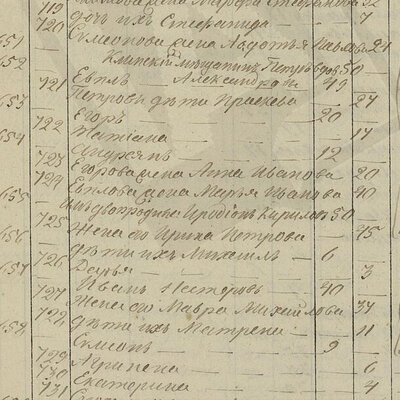 719
720 дочь ихъ Степанида — 7
651 Симеонова жена Авдотья 24
652 Клинскій мещанинъ Петръ 50
921 Евплъ Александровъ 49
653 Петровы дети Праскева — 24
722 Егоръ — 20
654 Татіана — 17
723 Андреянъ — 12
724 Егорова жена Анна Иванова 20
655 Евплова жена Марья Иванова 40
725 двоюродной Иродіонъ Кириловъ 50
656 Жена его Ирина Петрова — 45
726 дети ихъ Михаилъ — 6
657 Дарья — 3
727 Иванъ Несторовъ 40
722 Жена его Мавра Михайлова 34
658 дети ихъ Матрена — 11
Симеонъ — 9
729 Агрипена — 6
730 Екатерина — 4
731